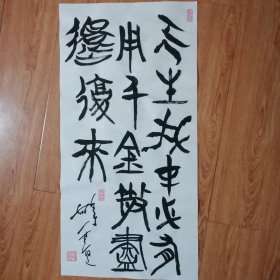 天生我才必有
用千金散盡
還復來